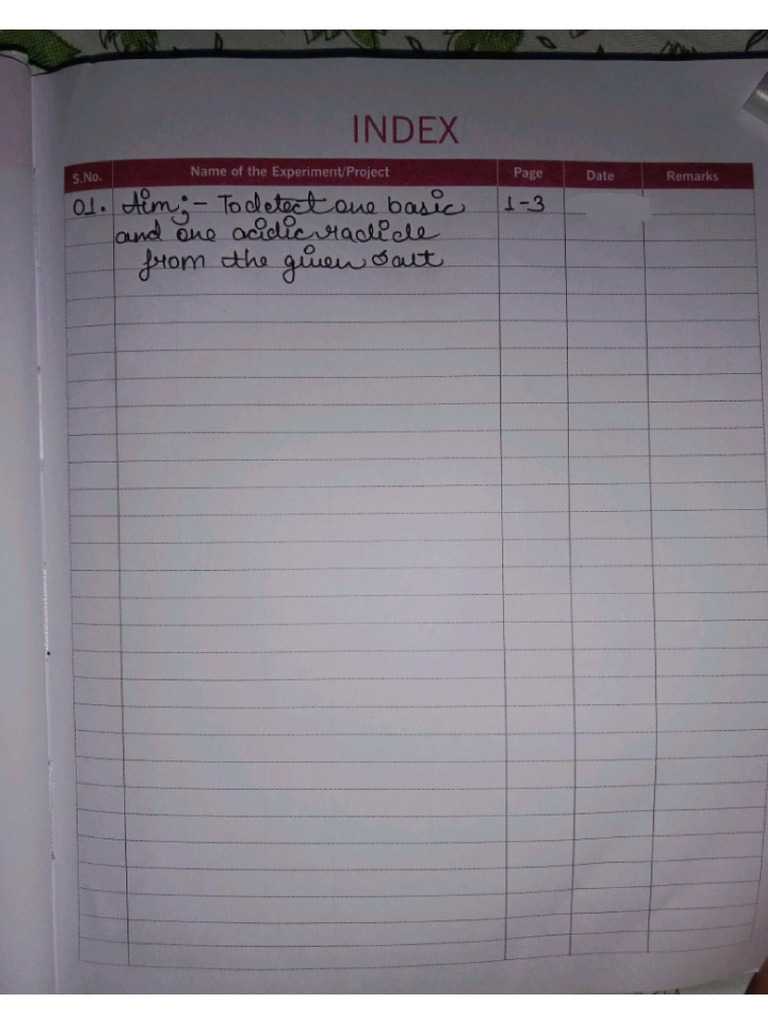 INDEX
S.No. Name of the Experiment/Project Page Date Remarks
01. Aim:- To detect one basic 1-3
and one acidic radicle
from the given salt